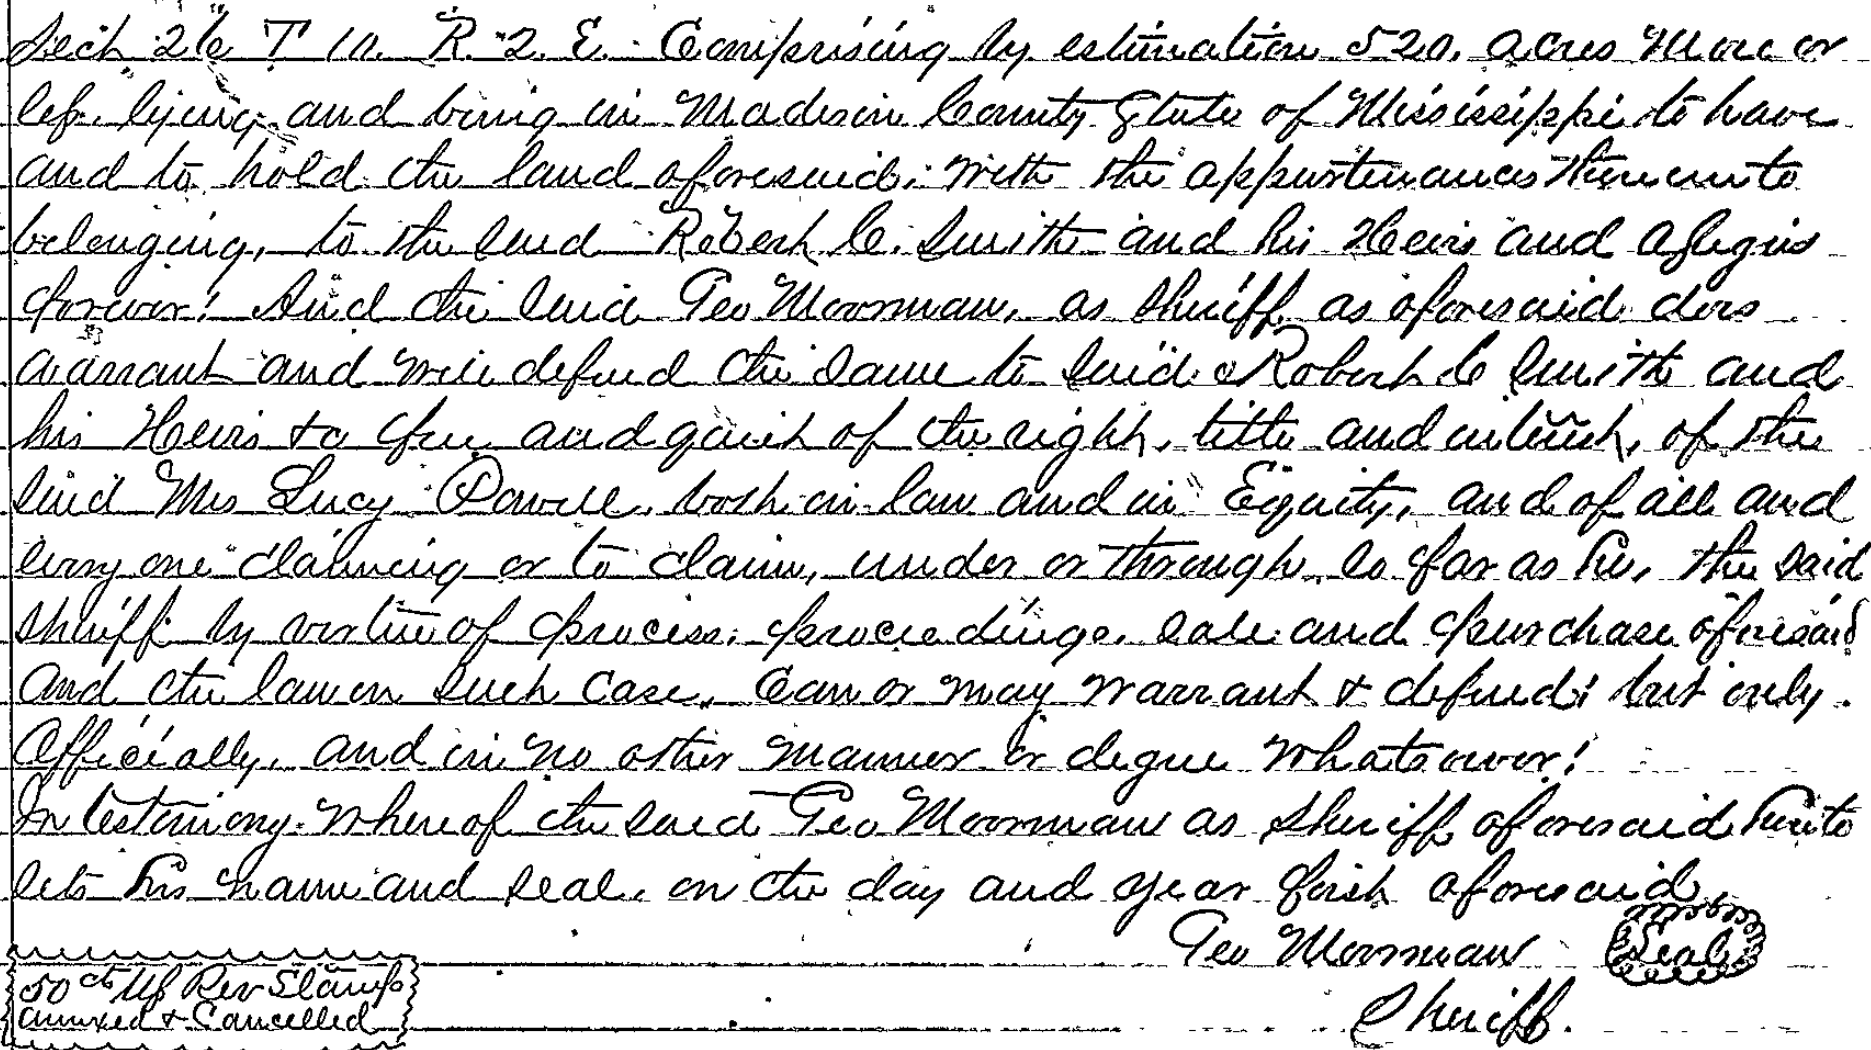 Sect 26 T 10. R. 2. E. Comprising by estimation 520, acres More or
less lying and being in Madison County State of Mississippi to have
and to hold the land aforesaid, with the appurtenances thereunto
belonging, to the said Robert C. Smith and his Heirs and assigns
forever! And the said Geo Moorman, as Sheriff, as aforesaid does
warrant and will defend the same to said Robert C Smith and
his Heirs to free and quit of the right, title and interest, of the
said Mrs Lucy Powell, both in law and in Equity, and of all and
every one claiming or to claim, under or through, so far as he, the said
Sheriff by virtue of process, proceedings, sale and purchase aforesaid
and the law in such case, Can or may warrant & defend; but only.
Officially, and in no other manner or degree whatsoever!
In testimony whereof the said Geo Moorman as Sheriff aforesaid hereto
sets his name and seal, on the day and year first aforesaid
Geo Moorman Seal
Sheriff.
50 cts US Rev Stamp
annexed & Cancelled